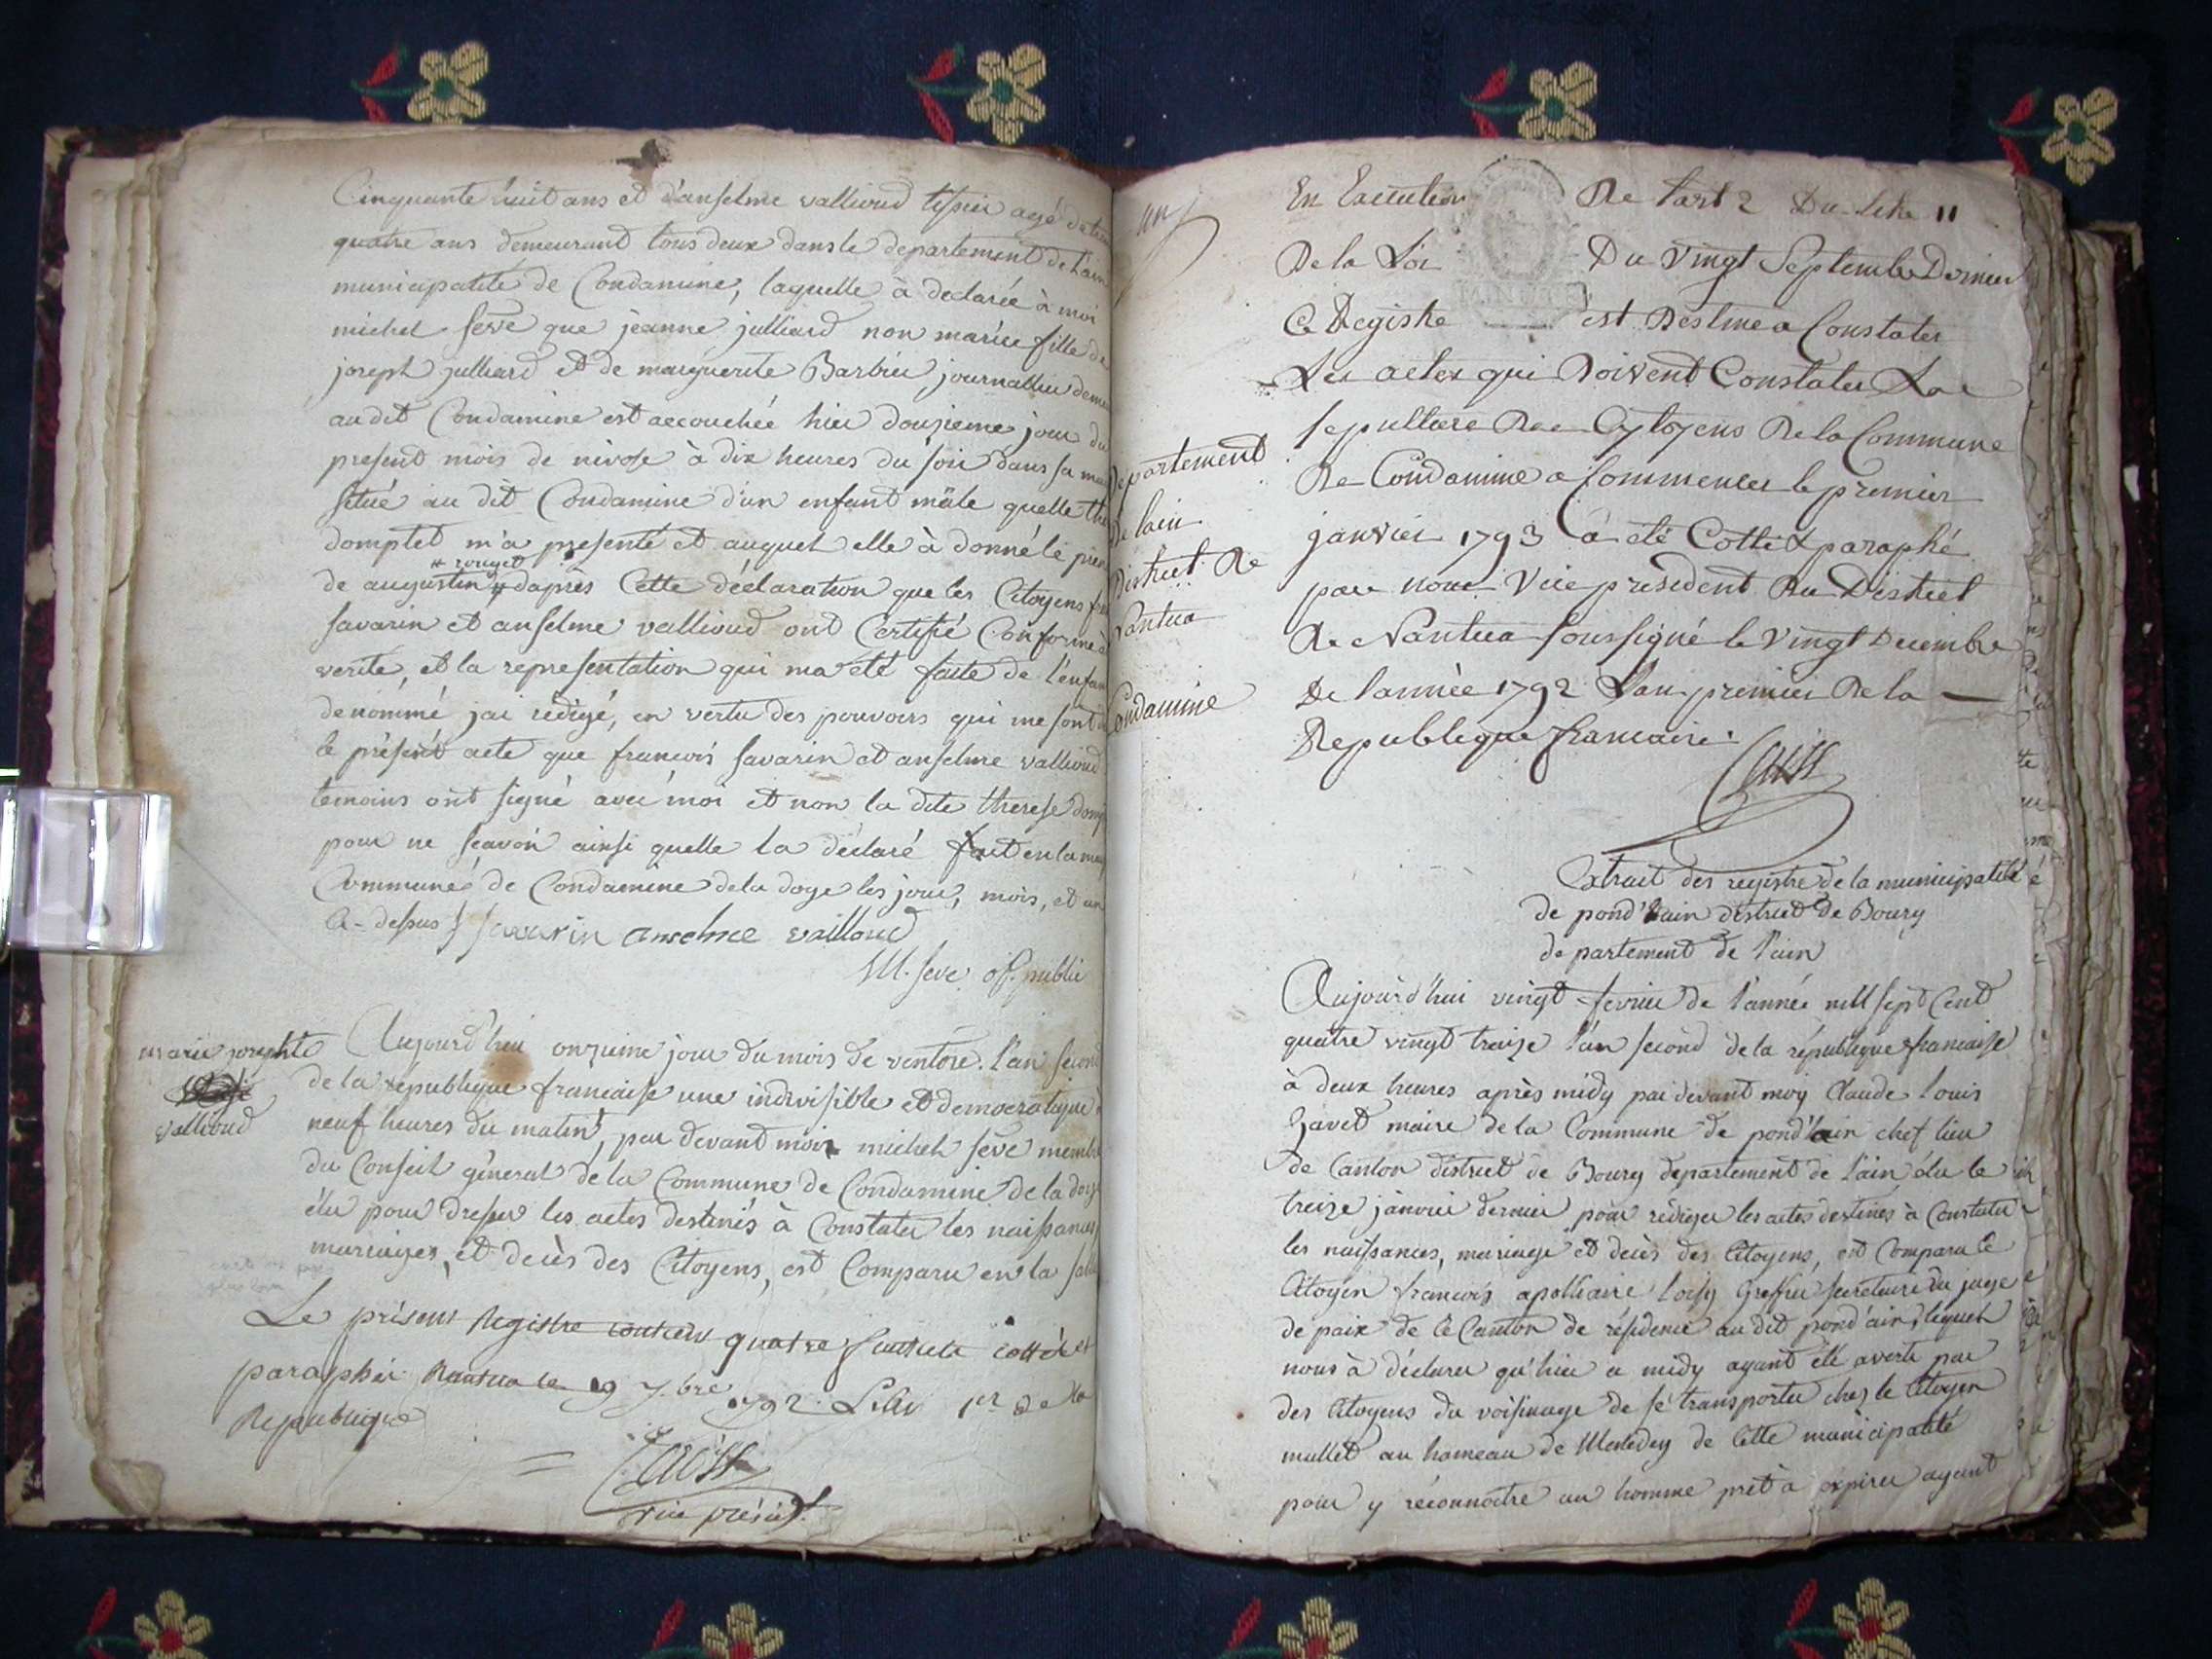 Cinquante huit ans et d'anselme vallioud tissier agé de
quatre ans demeurant tous deux dans le departement de l'ain
municipalité de Condamine, laquelle à declarée à moi
michel seve que jeanne julliard non mariée fille de
joseph julliard et de marguerite Barbier journallier
au dit Condamine est accouchée hier douzieme jour du
present mois de nivose à dix heures du soir dans sa
situé au dit Condamine d'un enfant mâle quelle
domptet m'a presenté et auquel elle à donné le
* rouget
de augustin * daprès Cette déclaration que les Citoyens
savarin et anselme vallioud ont Certifié Conforme à
verite, et la representation qui ma été faite de l'enfant
denommé jai rédigé, en vertu des pouvoirs qui me sont
le présent acte que francois savarin et anselme vallioud
temoins ont signé avec moi et non la dite therese
pour ne scavoir ainsi quelle la déclaré fait en la
Commune de Condamine de la doye les jour, mois, et an
Ci-dessus savarin anselme vailloud
M. seve of. public
marie josephte
vallioud
Aujourd'hui onzieme jour du mois de ventose l'an second
de la république francaise une indivisible et democratique
neuf heures du matin, par devant moi michel seve membre
du Conseil géneral de la Commune de Condamine de la doye
élu pour dresser les actes destinés à Constater les naissances
mariages, et décès des Citoyens, est Comparu en la
Le présent Registre contient quatre feuillets cottés et
paraphés Nantua le 19 Xbre 1792. L'an 1er de la
Republique
vice présidt.
En Execution De L'art 2 Du titre 11
De la Loi Du Vingt Septembre Dernier
Ce Registre est Destiné a Constater
Les actes qui Doivent Constater La
Sepulture Des Cytoyens De la Commune
De Condamine a Commencer le premier
janvier 1793 a été Cotté & paraphé
par nous Vice president Du District
De Nantua soussigné le Vingt Decembre
De L'année 1792 L'an premier De la
Republique francaise.
Departement
de lain
District De
Nantua
Condamine
Extrait des registre de la municipalité
de pond'ain district de Bourg
departement de l'ain
Aujourd'hui vingt fevrier de l'année mill sept Cent
quatre vingt treize l'an second de la république francaise
à deux heures après midy par devant moy Claude louis
Javet maire de la Commune de pond'ain chef lieu
de Canton district de Bourg departement de l'ain élu le
treize janvier dernier pour rédiger les actes destinés à Constater
les naissances, mariage et decès des Citoyens, est Comparu le
Citoyen francois greffier secretaire du juge
de paix de ce Canton de résidence au dit pond'ain, lequel
nous à déclaré qu'hier a midy ayant été averti par
des Citoyens du voisinage de se transporter chez le Citoyen
mullet au hameau de de Cette municipalité
pour y réconnoitre un homme prêt à expirer ayant